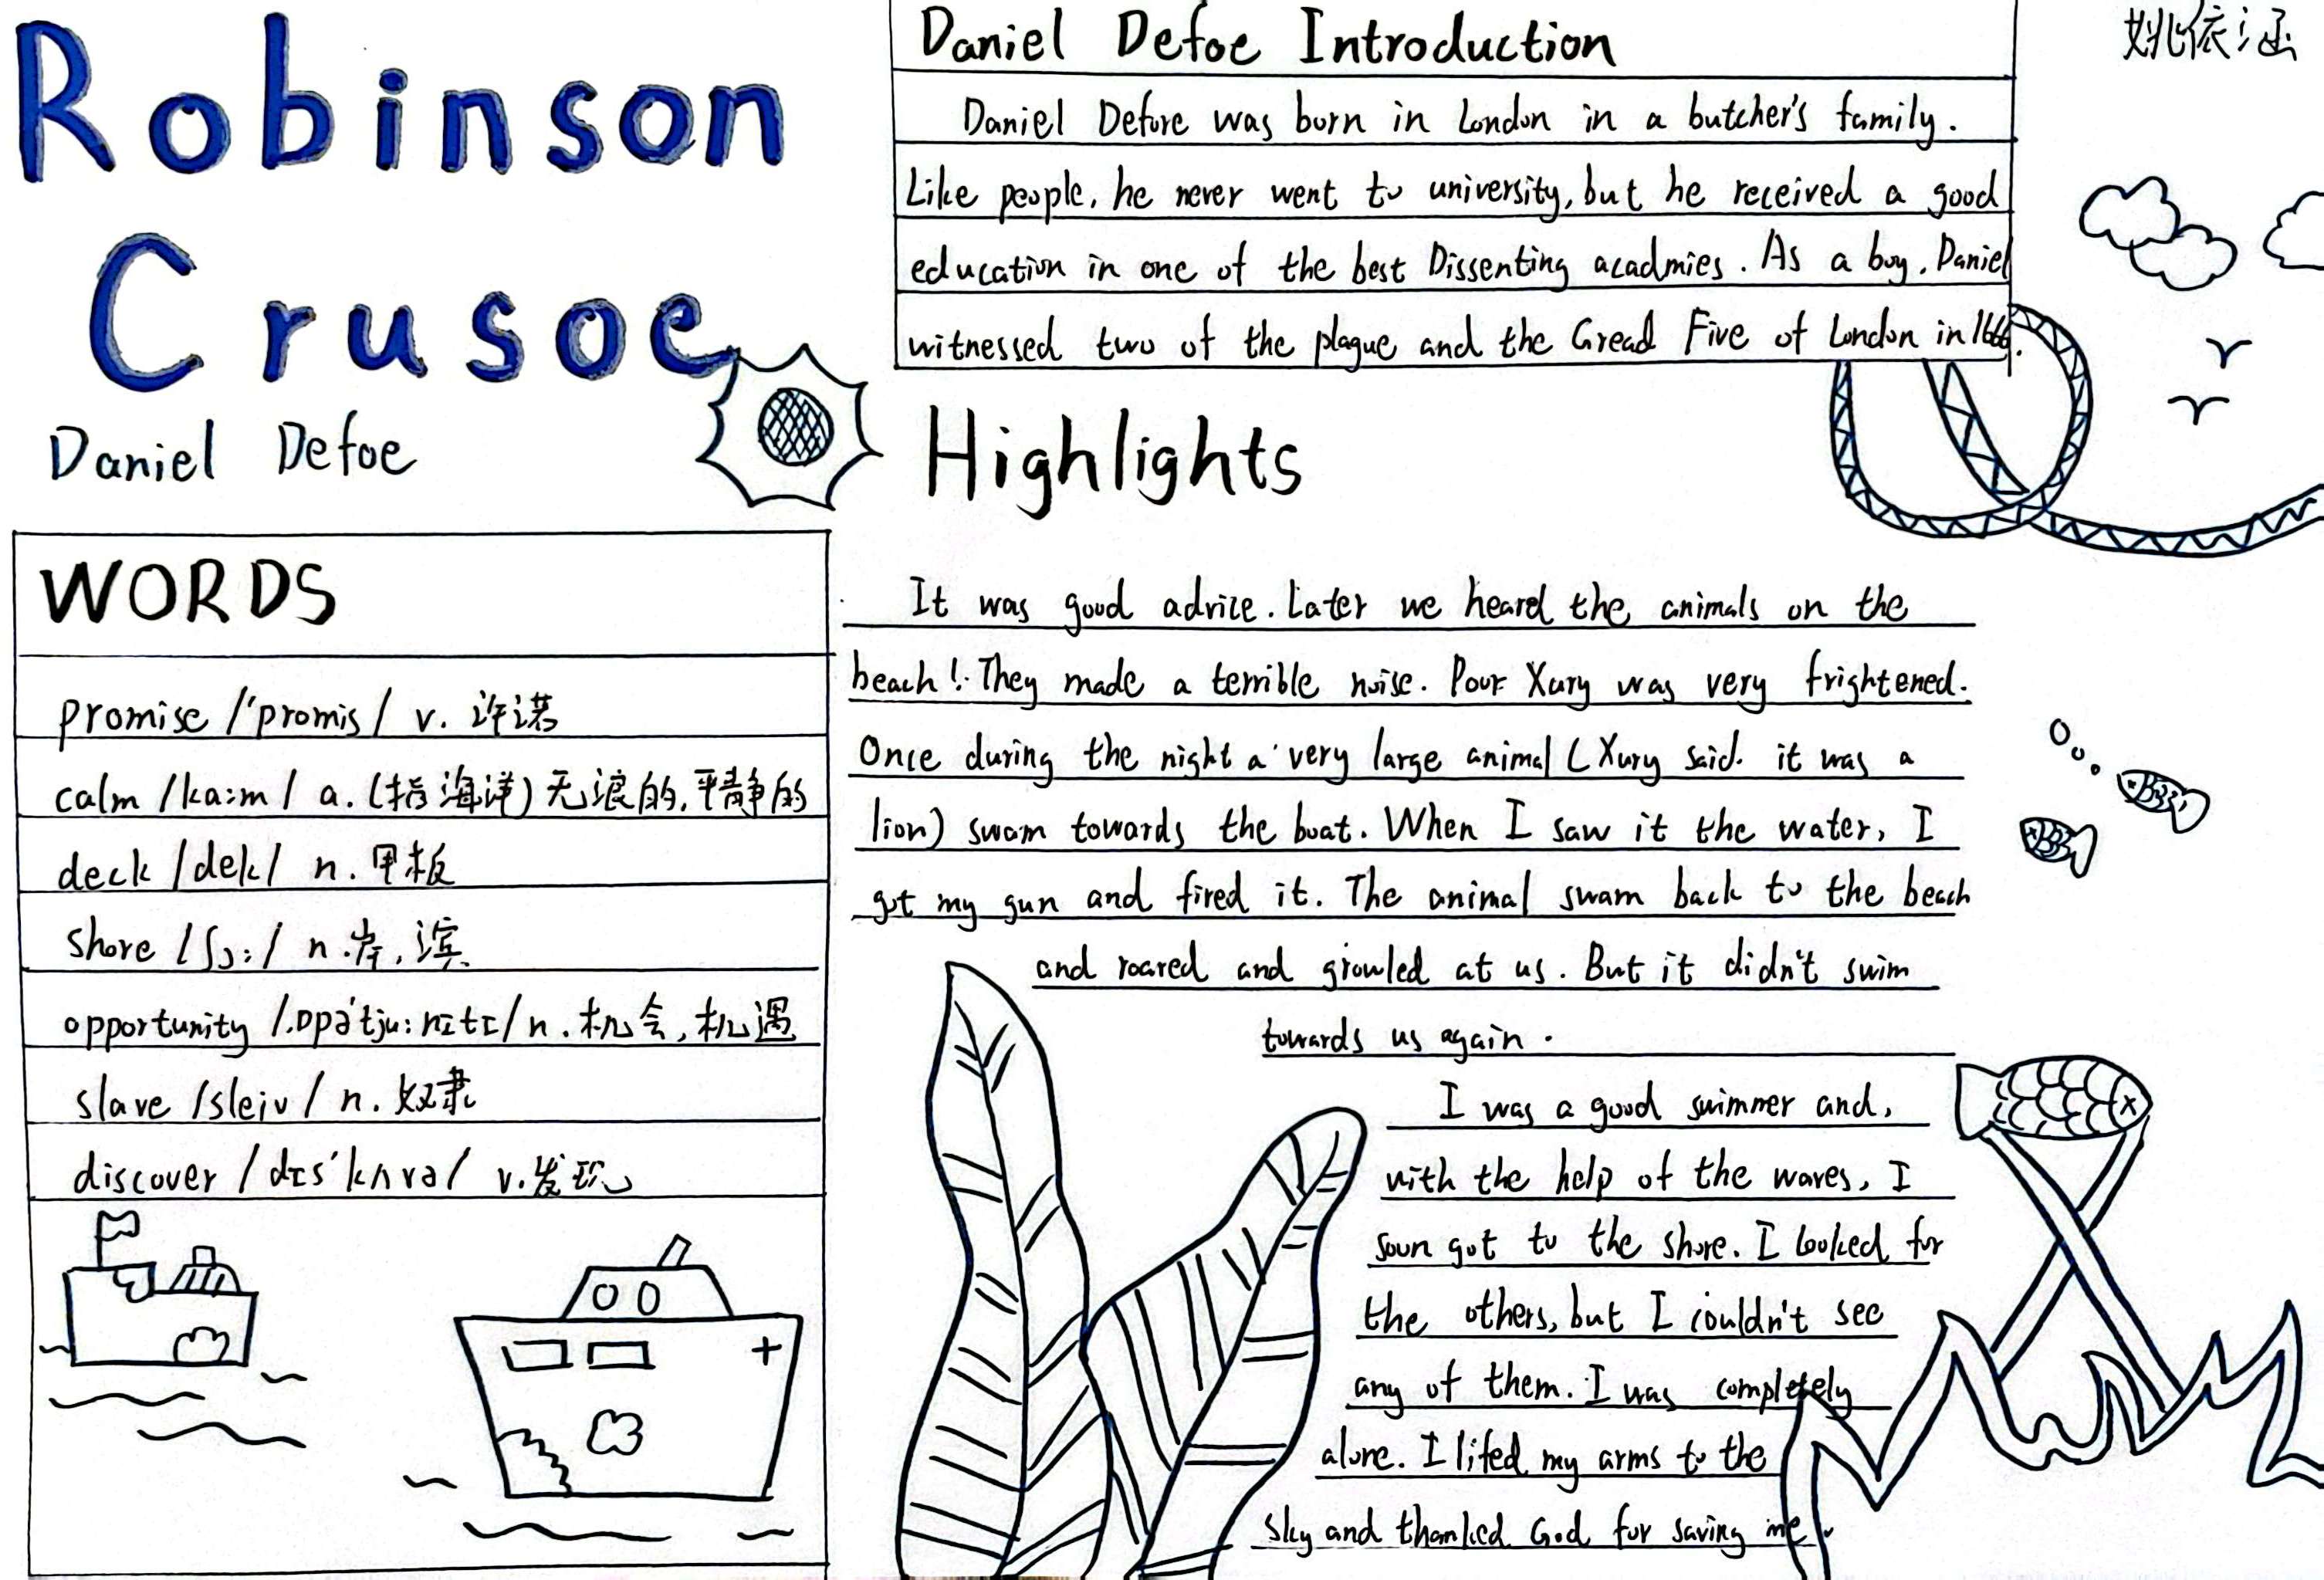 Robinson
Crusoe
Daniel Defoe
Daniel Defoe Introduction
姚依涵
Daniel Defore was born in London in a butcher's family.
Like people, he never went to university, but he received a good
education in one of the best Dissenting acadmies. As a boy, Daniel
witnessed two of the plague and the Gread Five of London in 1666.
WORDS
promise /'promis/ v. 许诺
calm /ka:m/ a. (指海洋)无浪的,平静的
deck /dek/ n. 甲板
shore /ʃɔ:/ n. 岸,滨
opportunity /.ɒpə'tju:nɪtɪ/ n. 机会,机遇
slave /sleiv/ n. 奴隶
discover /dɪs'kʌvə/ v. 发现
Highlights
It was good advice. Later we heard the animals on the
beach! They made a terrible noise. Poor Xury was very frightened.
Once during the night a very large animal (Xury said. it was a
lion) swam towards the boat. When I saw it the water, I
got my gun and fired it. The animal swam back to the beach
and roared and growled at us. But it didn't swim
towards us again.
I was a good swimmer and,
with the help of the waves, I
soon got to the shore. I looked for
the others, but I couldn't see
any of them. I was completely
alone. I lifed my arms to the
sky and thanked God for saving me.